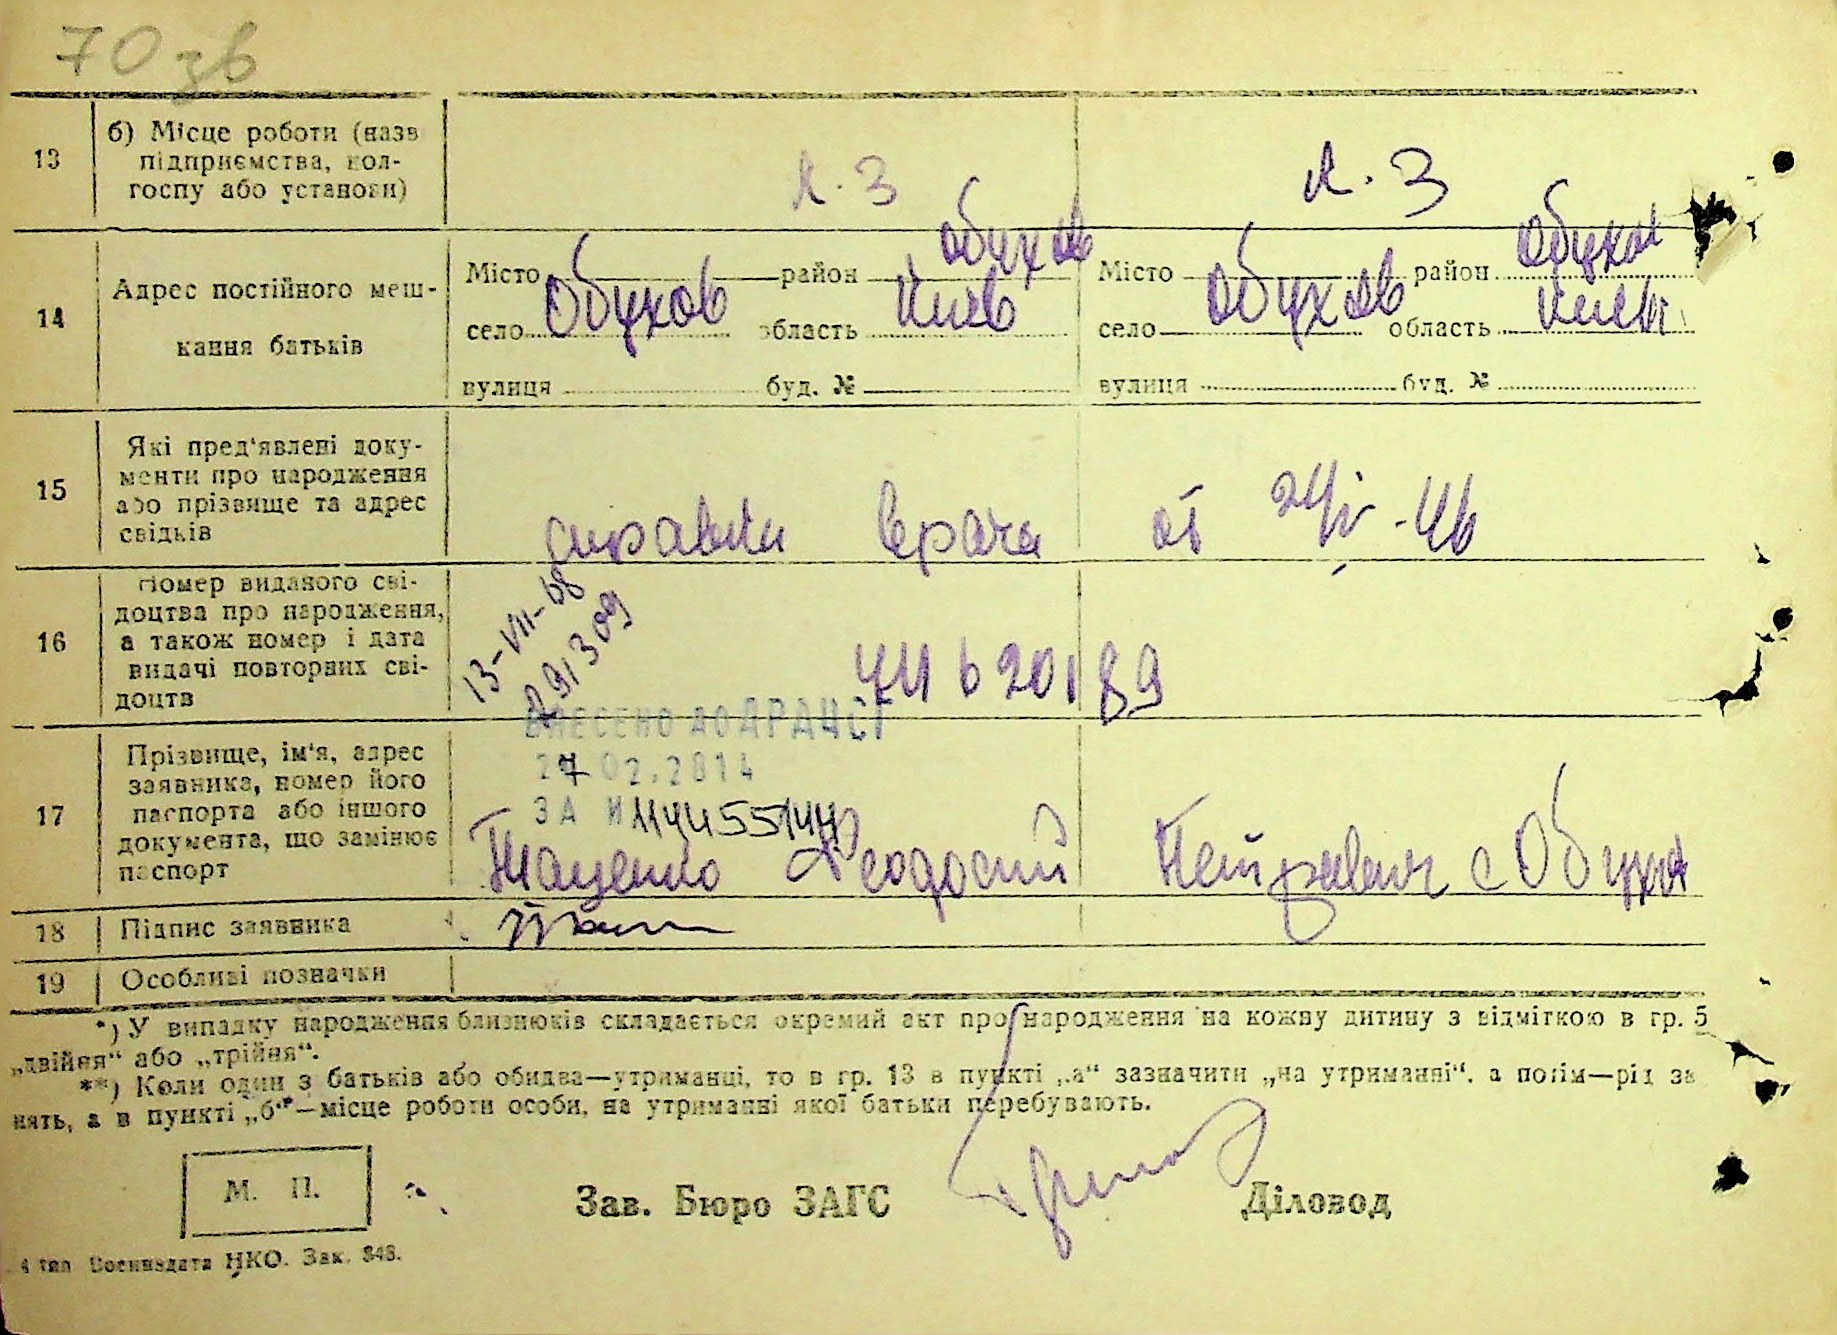 70 зв
13
б) Місце роботи (назв
підприємства, кол-
госпу або установи)
к. з
к. з
14
Адрес постійного меш-
кання батьків
Місто район Обухов
село Обухов область Киев
вулиця буд. №
Місто район Обухов
село Обухов область Киев
вулиця буд. №
15
Які пред'явлені доку-
менти про народження
або прізвище та адрес
свідків
справки врача от 24/IV-46
16
Номер виданого сві-
доцтва про народження,
а також номер і дата
видачі повторних сві-
доцтв
13-VII-68
291309
620189
ВНЕСЕНО ДО ДРАЦСГ
27 02.2014
ЗА И
17
Прізвище, ім'я, адрес
заявника, номер його
паспорта або іншого
документа, що замінює
паспорт
Тищенко Феодосий Петрович с Обухов
18
Підпис заявника
19
Особливі позначки
*) У випадку народження близнюків складається окремий акт про народження на кожну дитину з відміткою в гр. 5
„двійня“ або „трійня“.
**) Коли один з батьків або обидва—утриманці, то в гр. 13 в пункті „а“ зазначити „на утриманні“, а потім—рід за
нять, а в пункті „б“—місце роботи особи, на утриманні якої батьки перебувають.
М. П.
Зав. Бюро ЗАГС
Діловод
4 тип Воениздата НКО. Зак. 348.